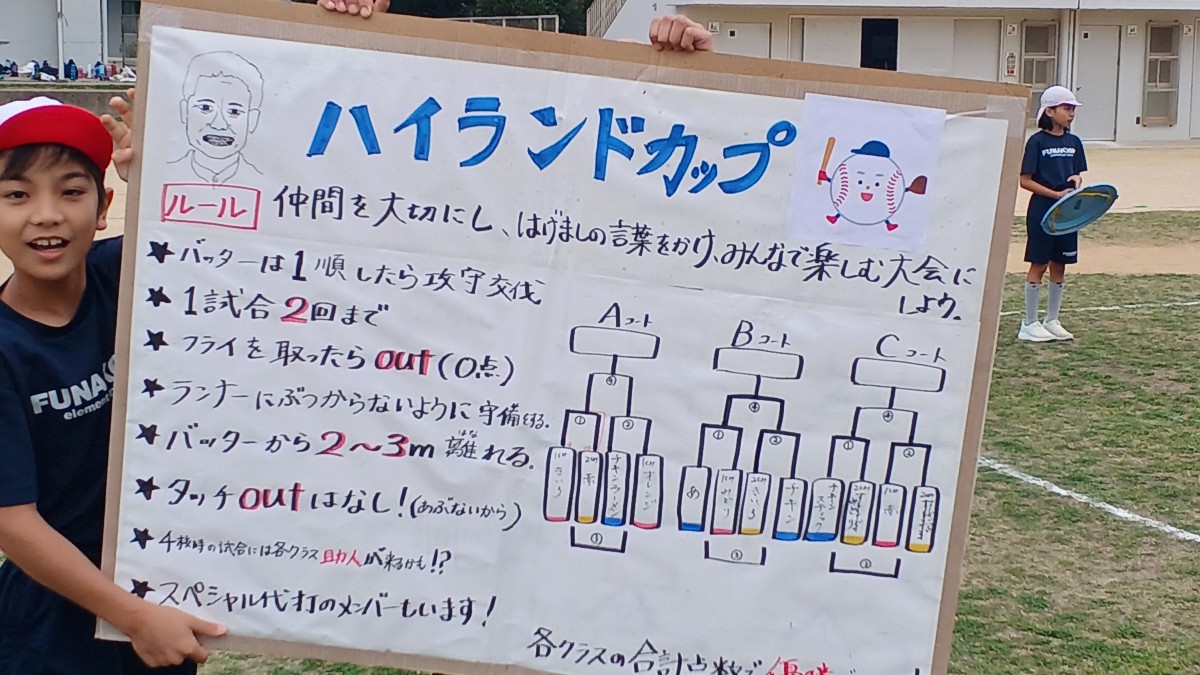 ハイランドカップ
ルール
仲間を大切にし、はげましの言葉をかけ、みんなで楽しむ大会に
しよう。
★バッターは1順したら攻守交代
★1試合2回まで
★フライを取ったらout(0点)
★ランナーにぶつからないように守備をする。
★バッターから2〜3m離れる。
はな
★タッチoutはなし!(あぶないから)
★4校時の試合には各クラス助人が来るかも!?
★スペシャル代打のメンバーもいます!
Aコート
④
① ②
1cm きいろ
2cm 赤
チキンラーメン
1cm オレンジ
③
Bコート
④
① ②
め
1cm みどり
2cm きいろ
チキン
③
Cコート
④
① ②
チキンスティック
1cm 赤
③
各クラスの合計点数で優勝
FUNAKO
element
FUNAKO